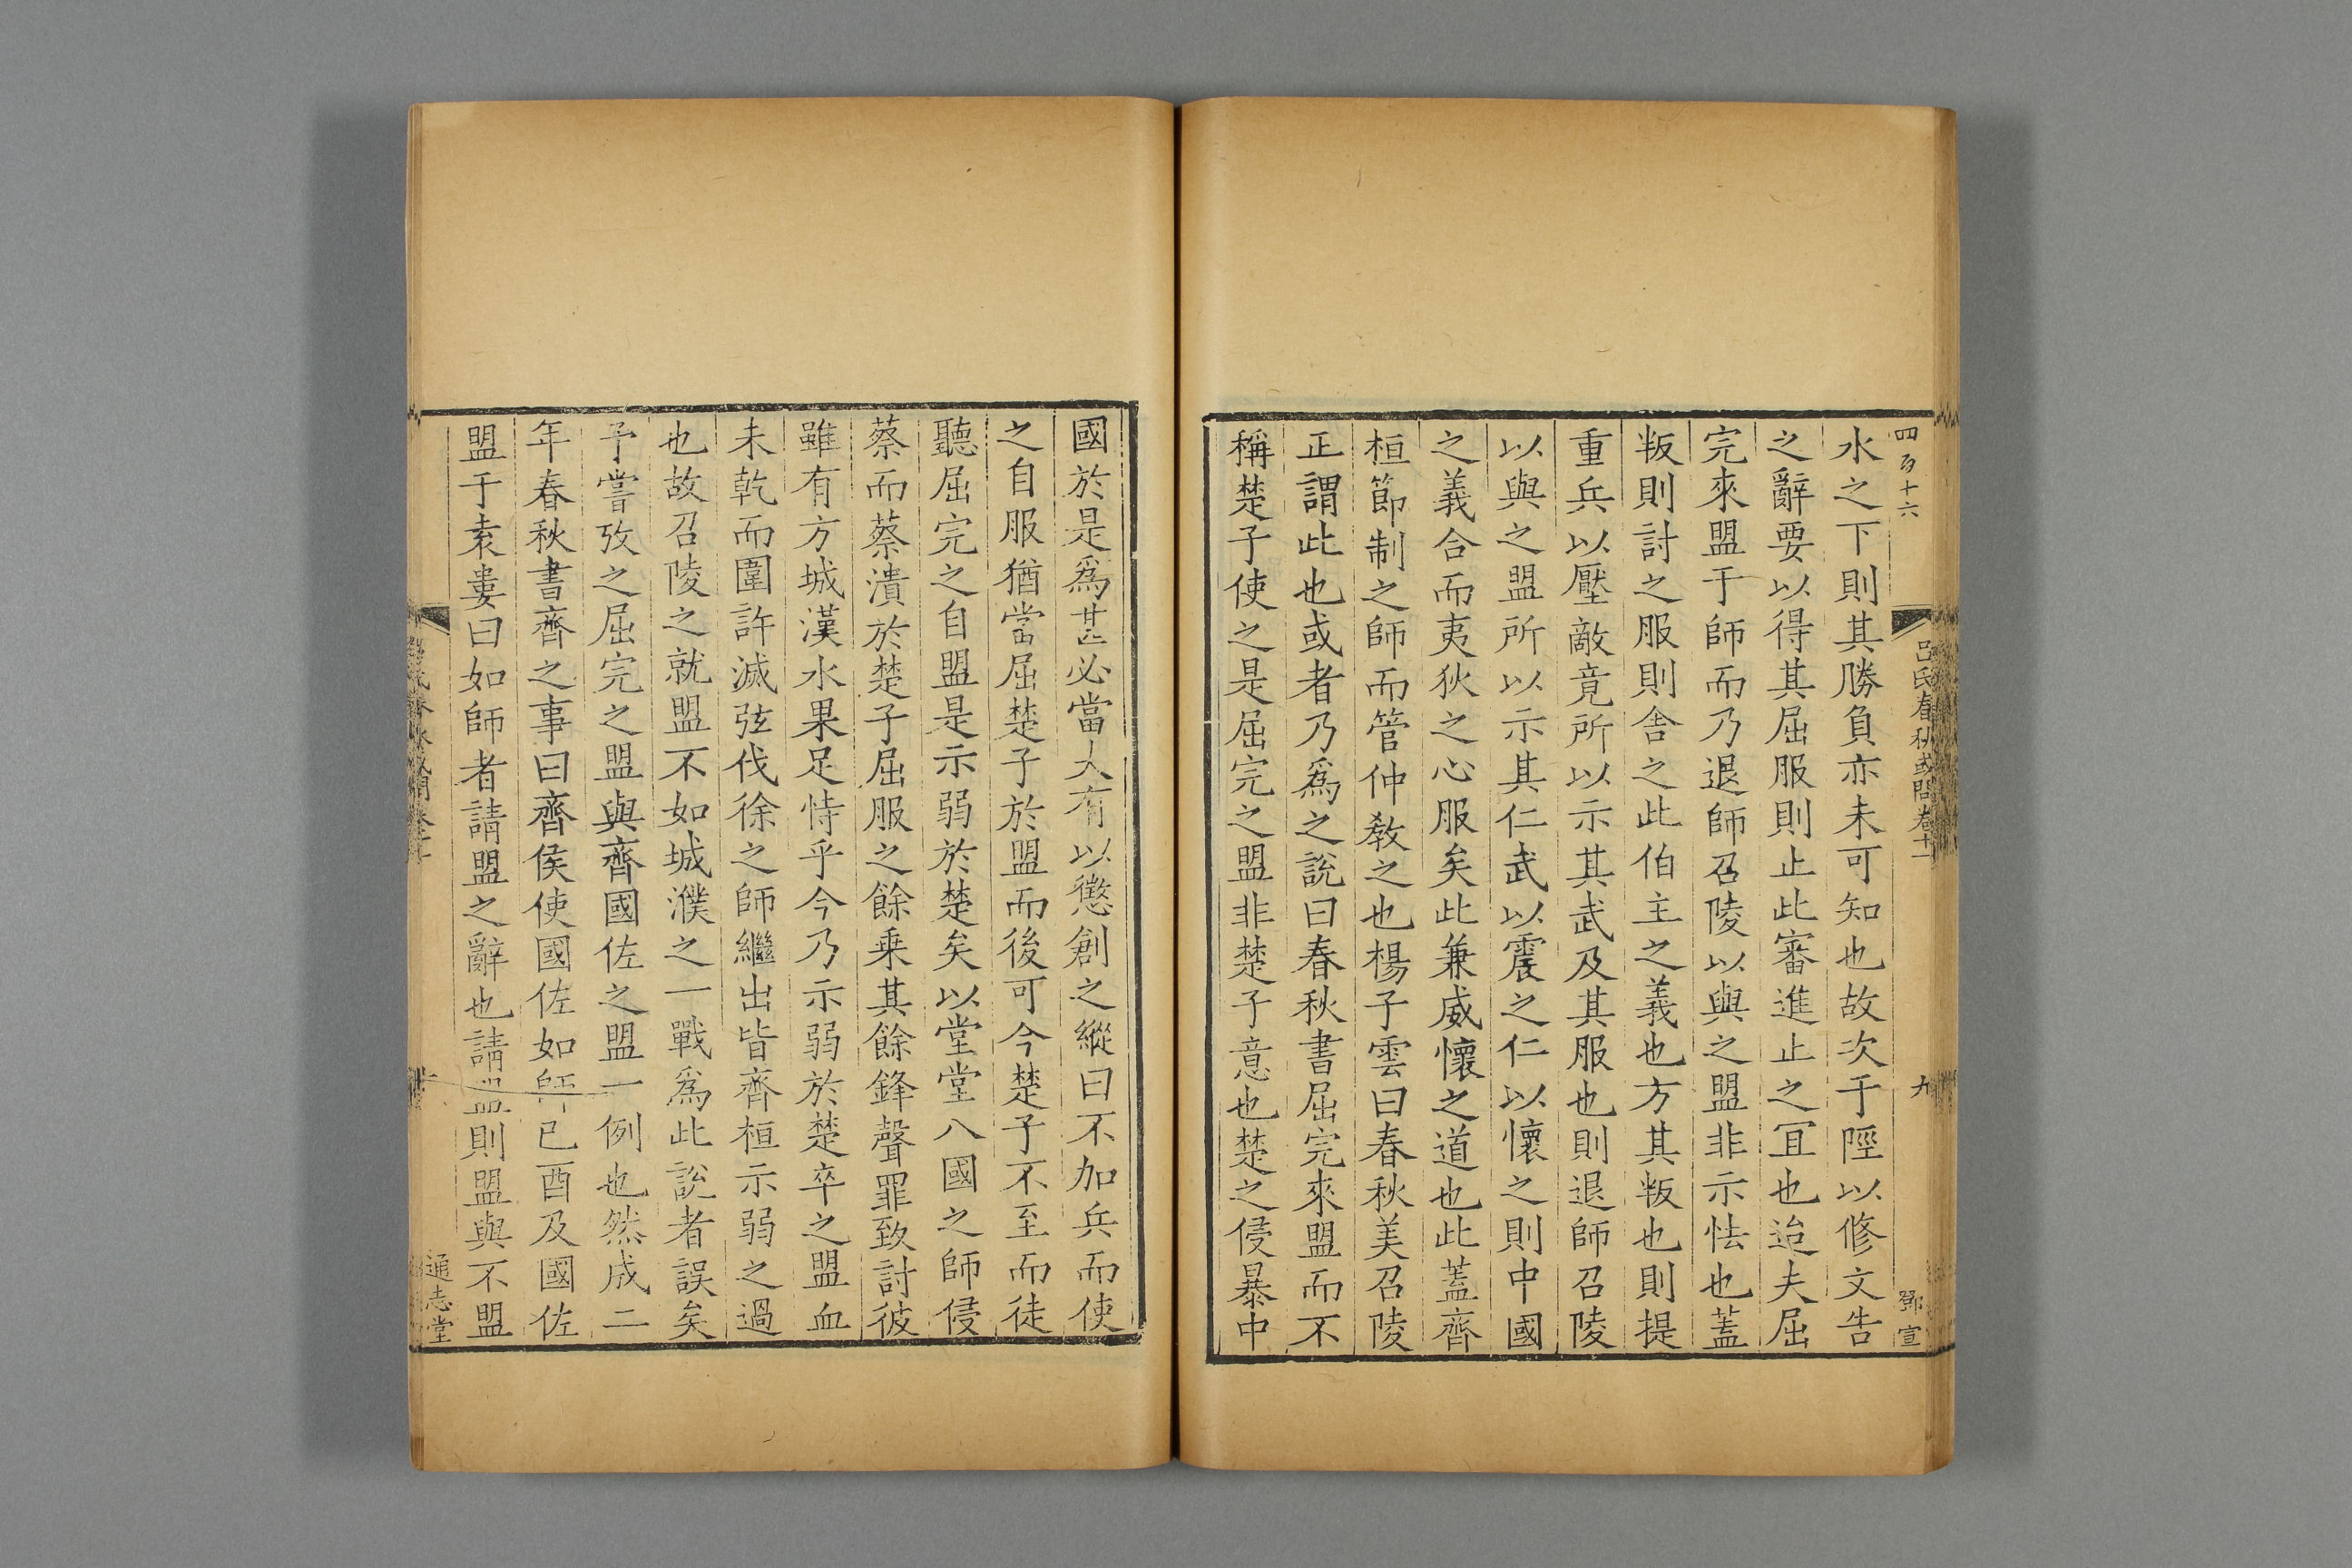 四百十六
呂氏春秋或問卷十一
九
鄧宣
水之下則其勝負亦未可知也故次于陘以修文告
之辭要以得其屈服則止此審進止之冝也迨夫屈
完來盟于師而乃退師召陵以與之盟非示怯也蓋
叛則討之服則舎之此伯主之義也方其叛也則提
重兵以壓敵竟所以示其武及其服也則退師召陵
以與之盟所以示其仁武以震之仁以懷之則中國
之義合而夷狄之心服矣此兼威懷之道也此蓋齊
桓節制之師而管仲敎之也楊子雲曰春秋美召陵
正謂此也或者乃爲之說曰春秋書屈完來盟而不
稱楚子使之是屈完之盟非楚子意也楚之侵暴中
國於是爲甚必當大有以懲創之縱曰不加兵而使
之自服猶當屈楚子於盟而後可今楚子不至而徒
聽屈完之自盟是示弱於楚矣以堂堂八國之師侵
蔡而蔡潰於楚子屈服之餘乗其餘鋒聲罪致討彼
雖有方城漢水果足恃乎今乃示弱於楚卒之盟血
未乾而圍許滅弦伐徐之師繼出皆齊桓示弱之過
也故召陵之就盟不如城濮之一戰爲此說者誤矣
予嘗攷之屈完之盟與齊國佐之盟一例也然成二
年春秋書齊之事曰齊侯使國佐如師己酉及國佐
盟于袁婁曰如師者請盟之辭也請盟則盟與不盟
通志堂